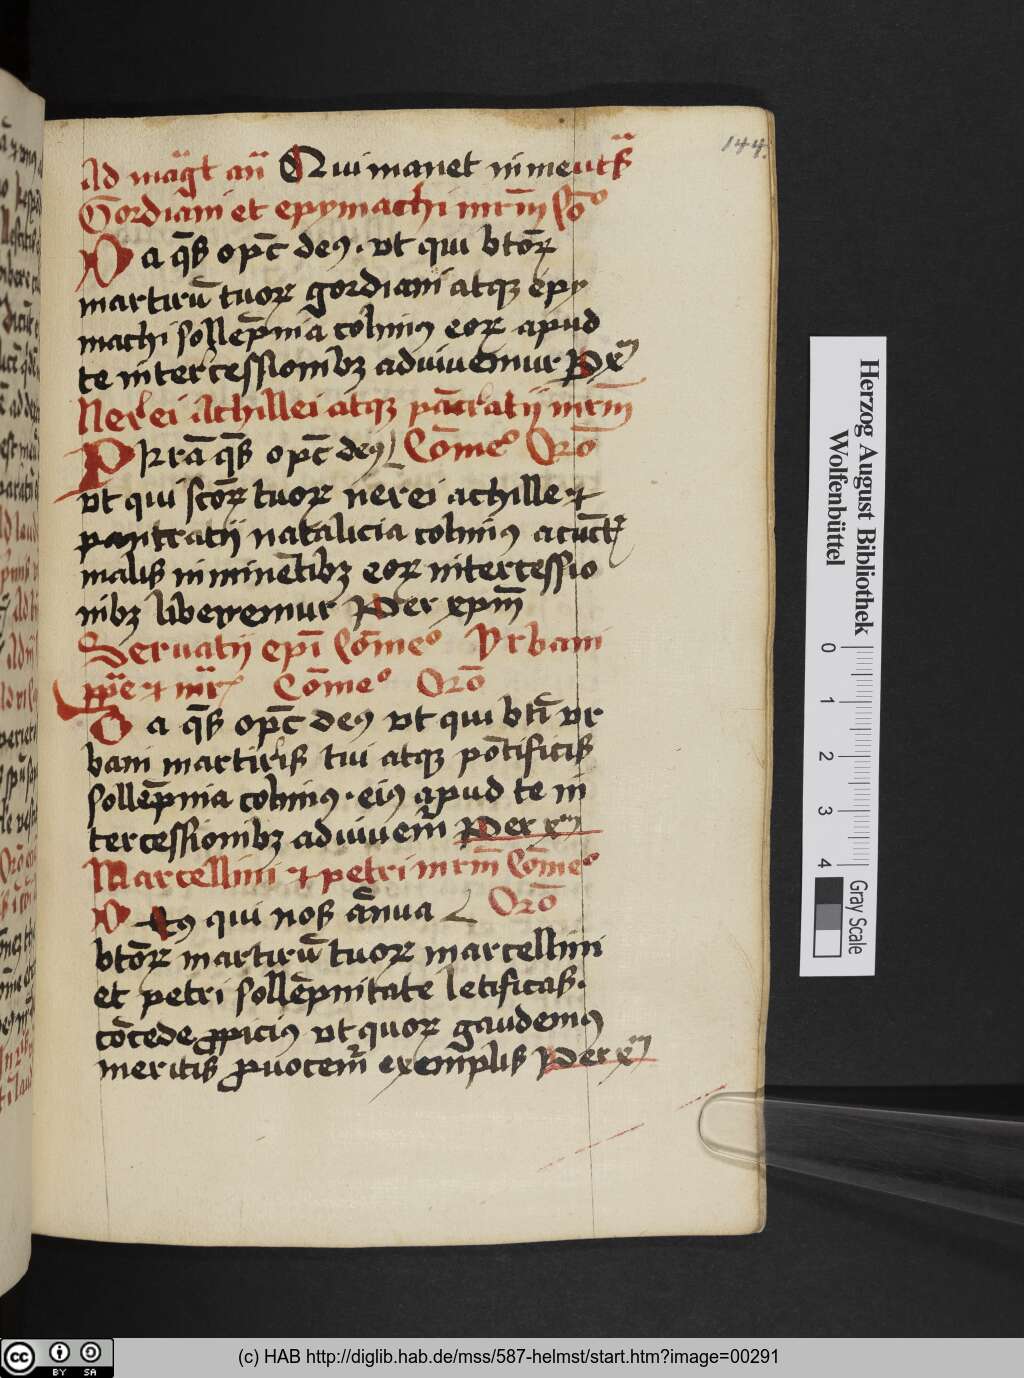 144.
Ad mag̅t an̅ Qui manet in me uts̅
Gordiani et epymachi mr̅m Co̅
Da qs̅ opc̅ deꝰ · vt qui bto̅ꝝ
martiru̅ tuoꝝ gordiani atqꝫ epy
machi solle̅pnia colimꝰ eoꝝ apud
te intercessionibꝫ adiuuemur P xm̅
Nerei Achillei atqꝫ pa̅cratij mr̅m
Pr̅ra̅ qs̅ opc̅ deꝰ Co̅meº Oro̅
vt qui sco̅ꝝ tuoꝝ nerei achille et
pancratij natalicia colimꝰ a cu̅ct
malis in mine̅tibꝫ eoꝝ intercessio
nibꝫ liberemur Per xpm̅
Seruatij epi̅ Co̅meº Vrbani
pp̅e et mr̅ Co̅meº Oro̅
Da qs̅ opc̅ deꝰ vt qui bti̅ vr
bani martiris tui atqꝫ po̅tificis
solle̅pnia colimꝰ · eiꝰ apud te in
tercessionibꝫ adiuuem̅ Per xm̅
Marcellini et petri mr̅m Co̅meº
Oro̅
Ds̅ qui nos a̅nua
bto̅ꝝ martiru̅ tuoꝝ marcellini
et petri solle̅pnitate letificas ·
co̅cede ꝓpiciꝰ vt quoꝝ gaudemꝰ
meritis ꝓuocem̅ exemplis Per xm̅
Herzog August Bibliothek
Wolfenbüttel
0
1
2
3
4
Gray Scale
cc BY SA
(c) HAB http://diglib.hab.de/mss/587-helmst/start.htm?image=00291